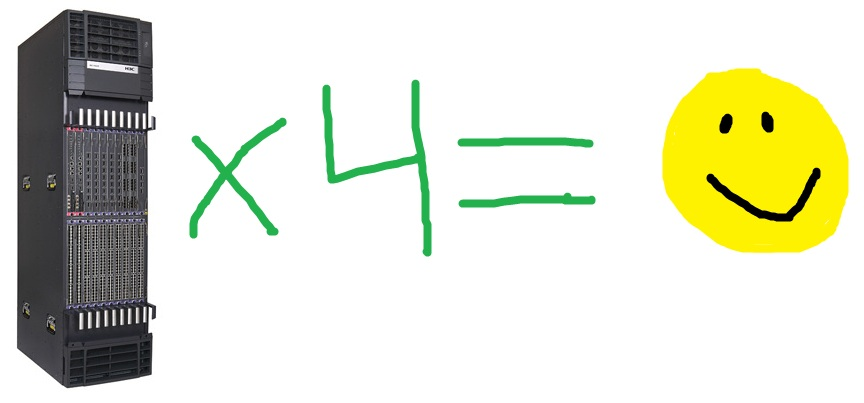 H3C
x 4 =